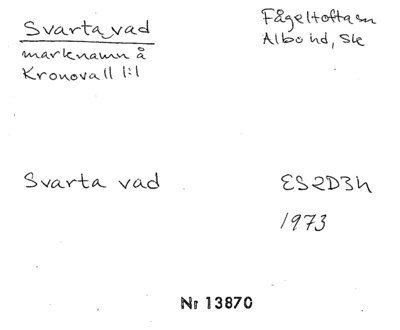 Svarta vad
marknamn å
Kronovall 1:1
Fågeltofta sn
Albo hd, Sk
Svarta vad
ES2D3h
1973
Nr 13870